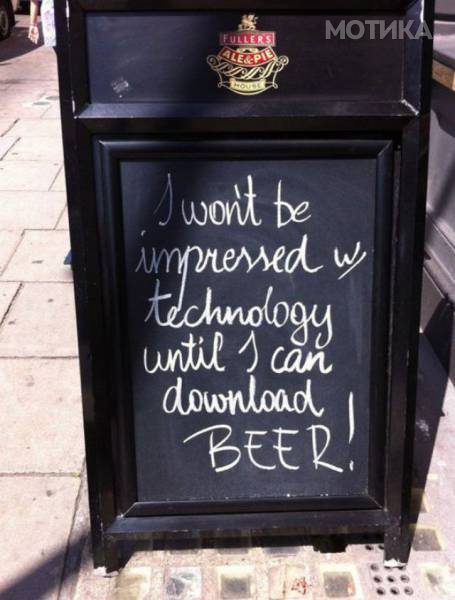 МОТИКА
FULLER'S
ALE & PIE
HOUSE
I won't be
impressed w/
technology
until I can
download
BEER!